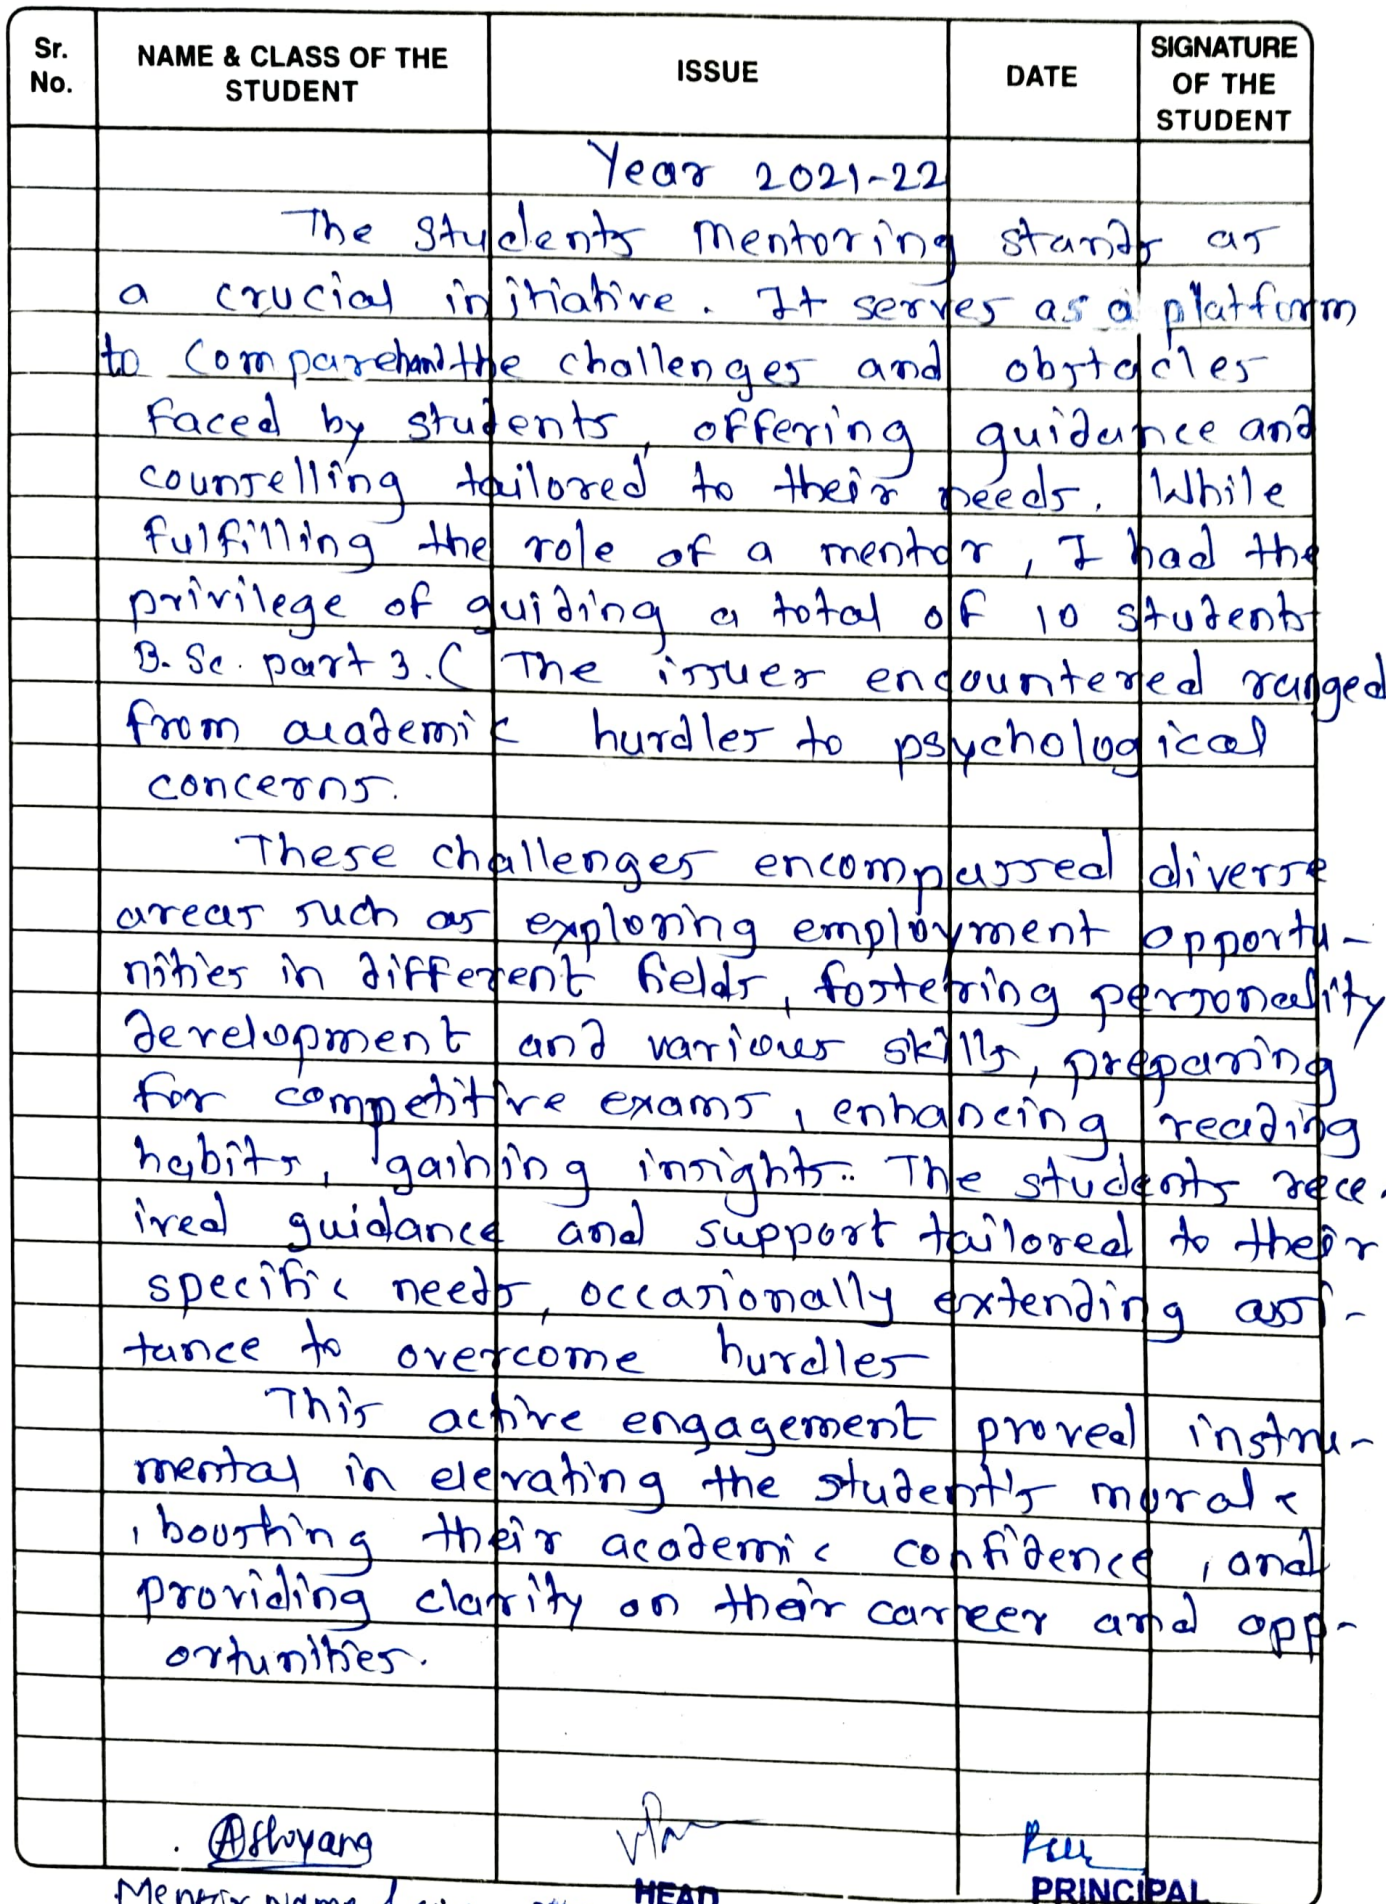 Sr. No.
NAME & CLASS OF THE STUDENT
ISSUE
DATE
SIGNATURE OF THE STUDENT
Year 2021-22
The Students Mentoring stands as
a crucial initiative. It serves as a platform
to comparehand the challenges and obstacles
faced by students, offering guidance and
counselling tailored to their needs. While
fulfilling the role of a mentor, I had the
privilege of guiding a total of 10 students
B.Sc. part 3. ( The issues encountered ranged
from academic hurdles to psychological
concerns.
These challenges encompassed diverse
areas such as exploring employment opportu-
nities in different fields, fostering personality
development and various skills, preparing
for competitive exams, enhancing reading
habits, gaining insights.. The students rece.
ived guidance and support tailored to their
specific needs, occasionally extending assi-
tance to overcome hurdles
This active engagement proved instru-
mental in elevating the student's morale
, boosting their academic confidence, and
providing clarity on their career and opp-
ortunities.
HEAD
PRINCIPAL